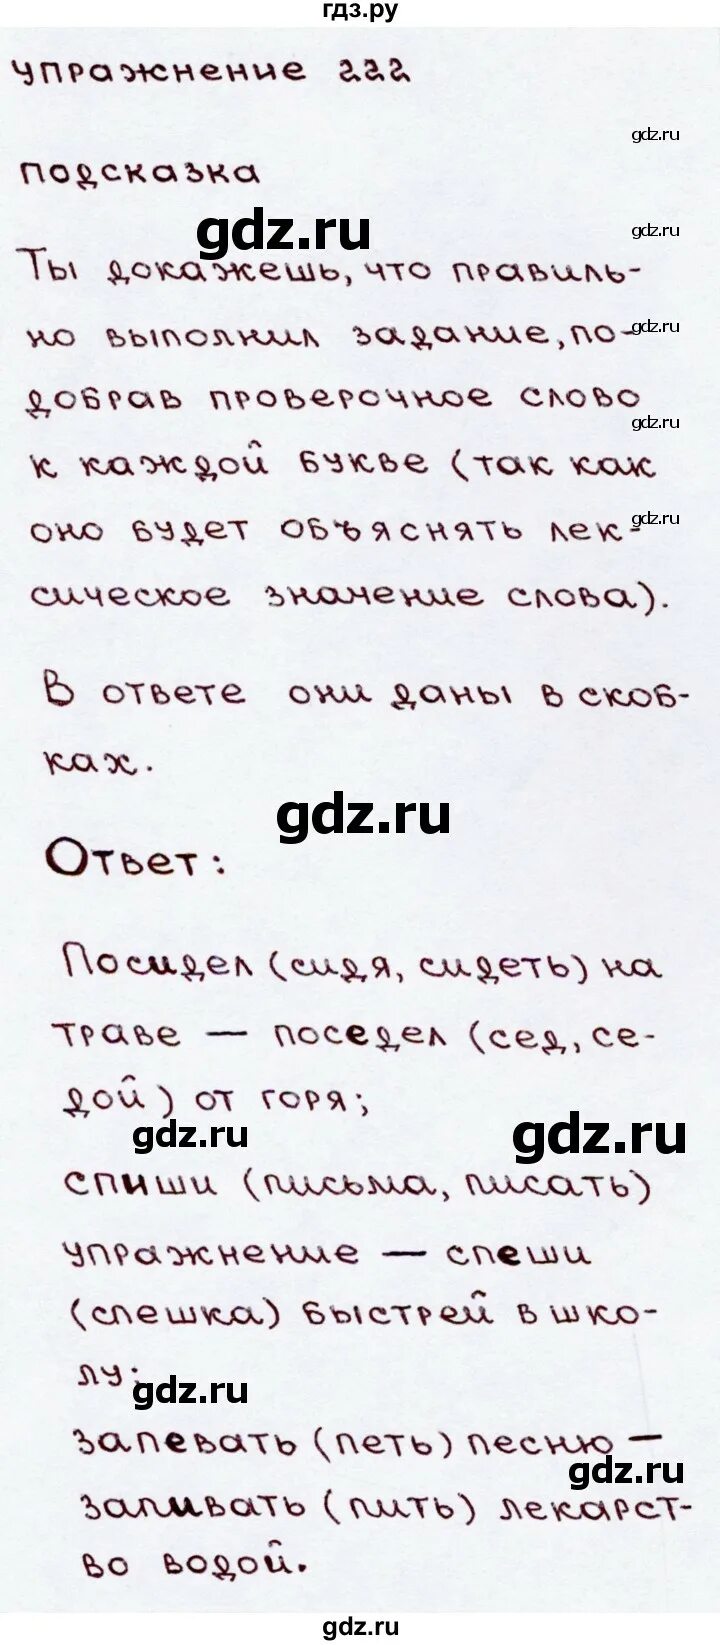 гдз.ру
упражнение 222
gdz.ru
подсказка
gdz.ru
gdz.ru
Ты докажешь, что правиль-
gdz.ru
но выполнил задание, по-
добрав проверочное слово
gdz.ru
к каждой букве (так как
gdz.ru
оно будет объяснять лек-
сическое значение слова).
В ответе они даны в скоб-
ках.
gdz.ru
Ответ:
Посидел (сидя, сидеть) на
траве — поседел (сед, се-
дой) от горя;
gdz.ru
gdz.ru
спиши (письма, писать)
упражнение — спеши
(спешка) быстрей в шко-
лу;
gdz.ru
запевать (петь) песню —
gdz.ru
запивать (пить) лекарст-
во водой.
gdz.ru